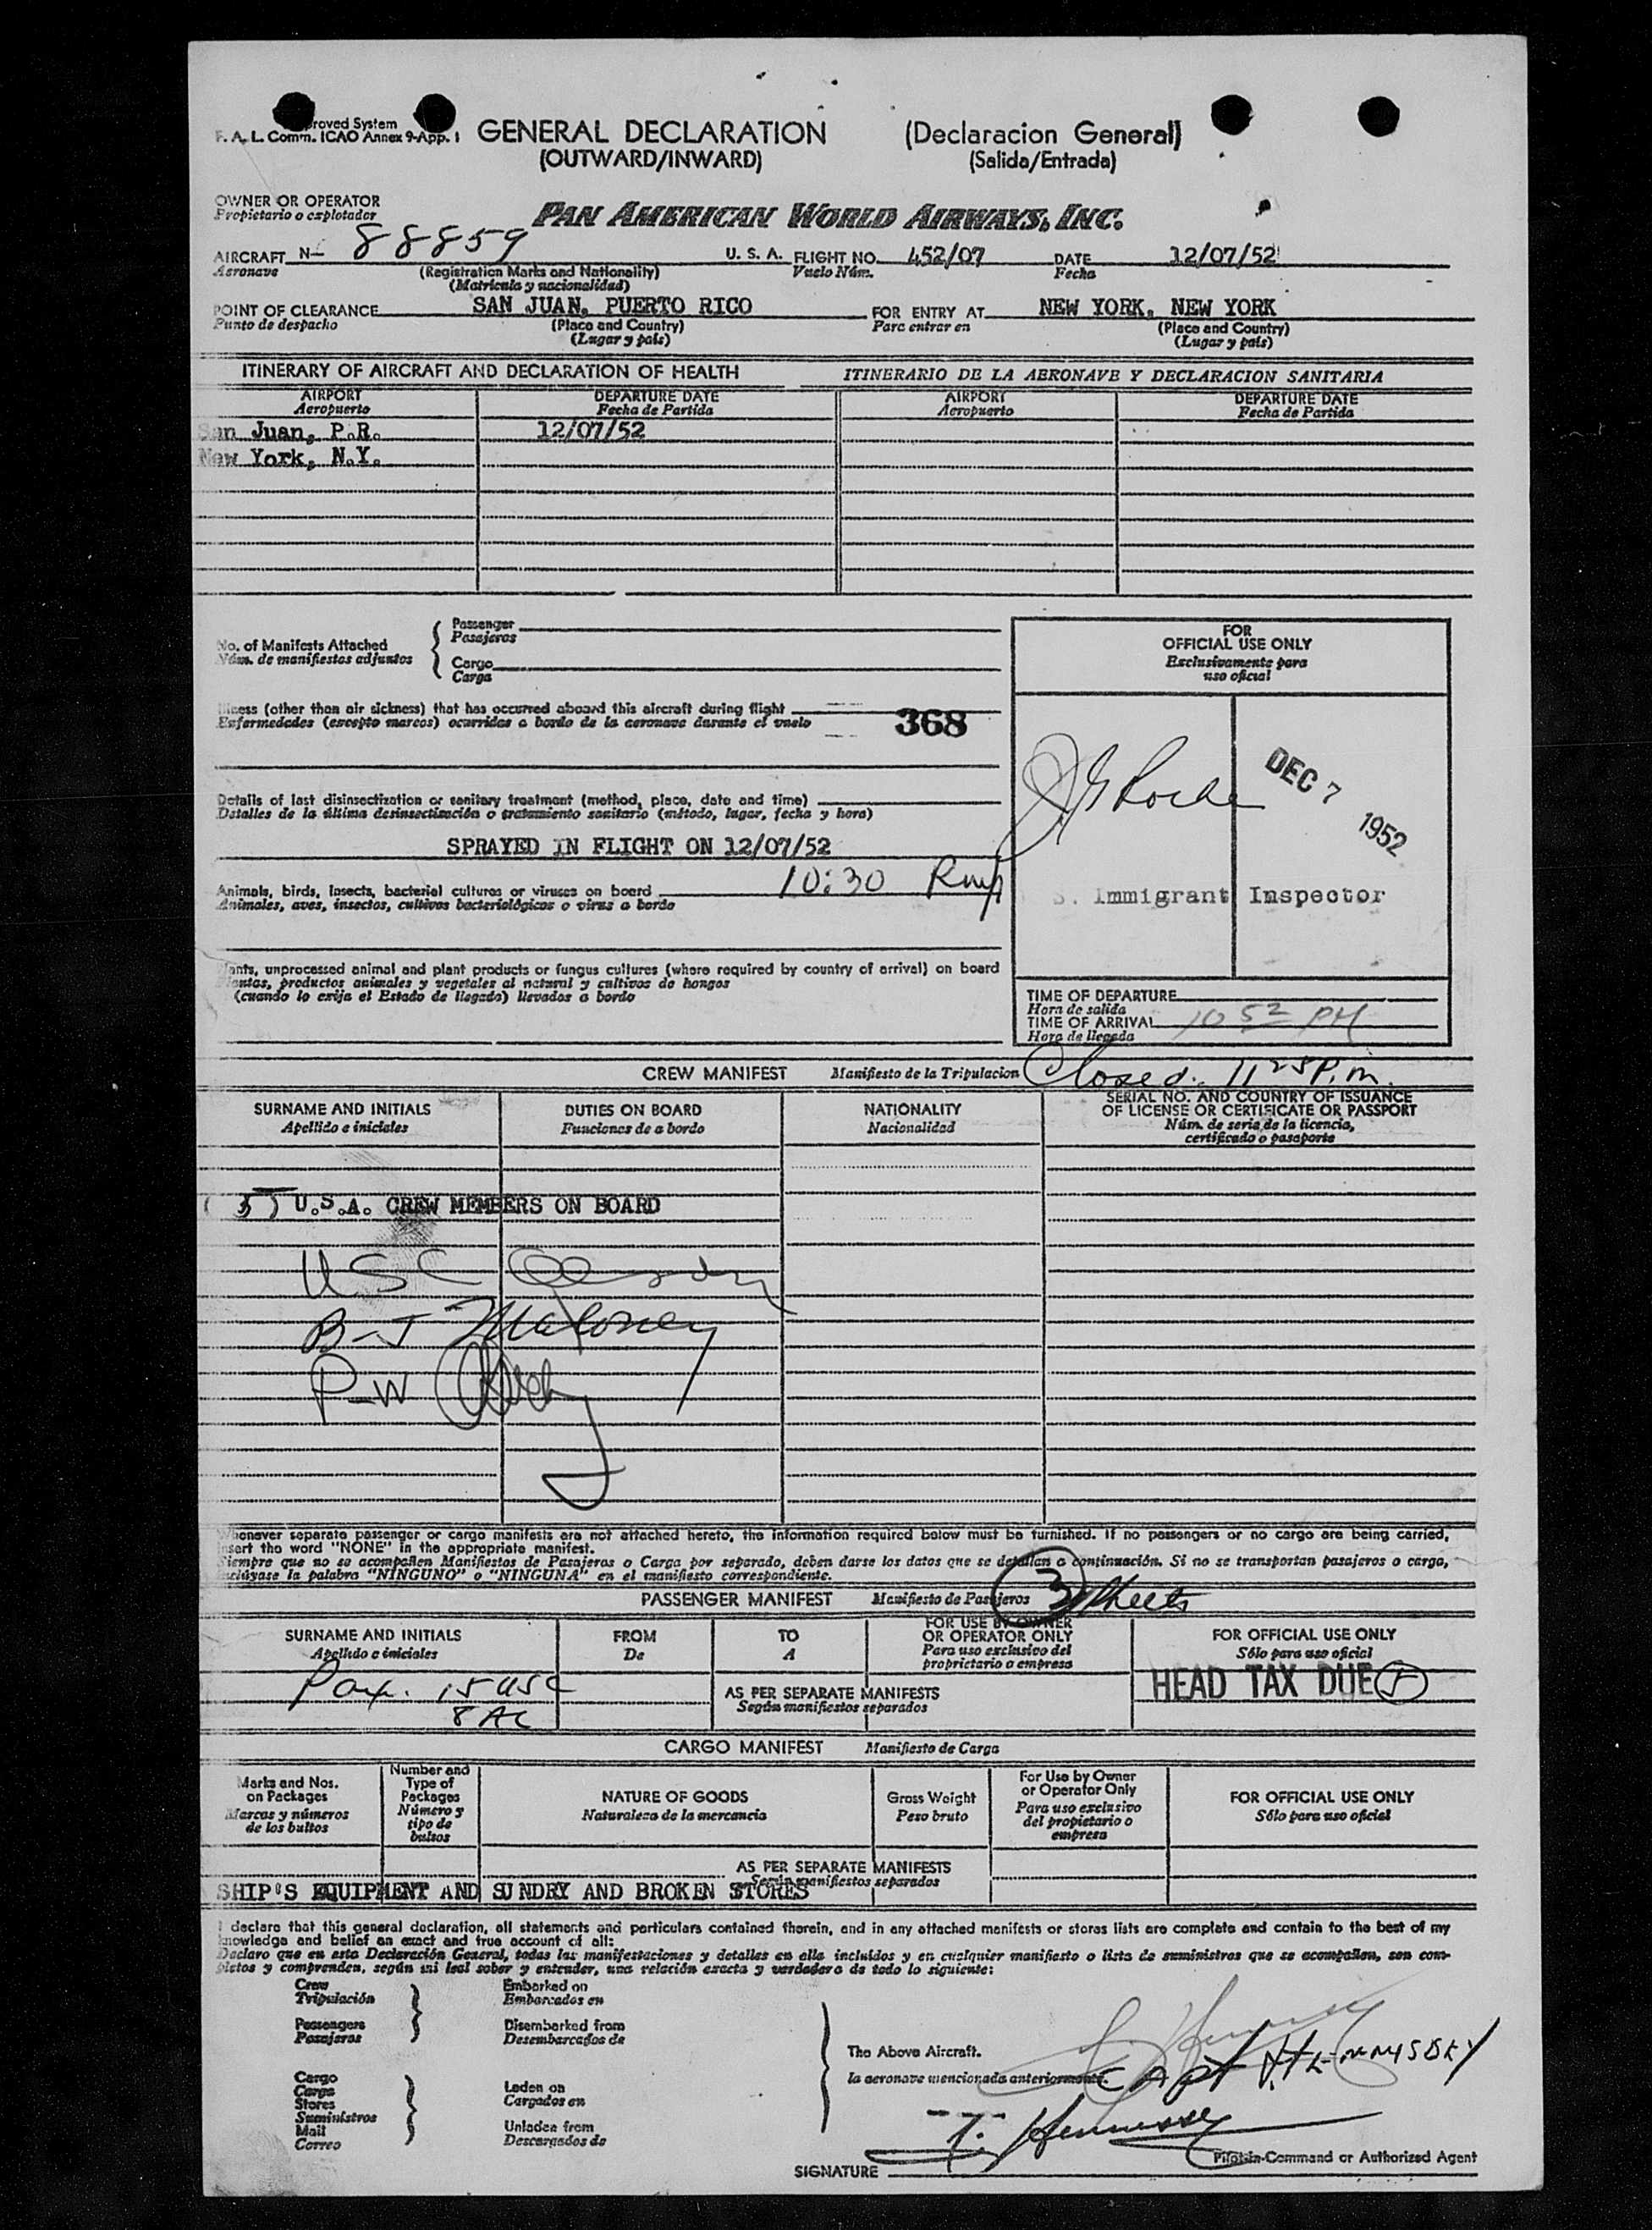 roved System
F. A. L. Comm. ICAO Annex 9-App. 1
GENERAL DECLARATION (Declaracion General)
(OUTWARD/INWARD) (Salida/Entrada)
OWNER OR OPERATOR
Propietario o explotador
PAN AMERICAN WORLD AIRWAYS, INC.
AIRCRAFT N- 88859 U. S. A. FLIGHT NO. 452/07 DATE 12/07/52
Aeronave (Registration Marks and Nationality) Vuelo Núm. Fecha
(Matricula y nacionalidad)
POINT OF CLEARANCE SAN JUAN, PUERTO RICO FOR ENTRY AT NEW YORK, NEW YORK
Punto de despacho (Place and Country) Para entrar en (Place and Country)
(Lugar y país) (Lugar y país)
ITINERARY OF AIRCRAFT AND DECLARATION OF HEALTH ITINERARIO DE LA AERONAVE Y DECLARACION SANITARIA
AIRPORT DEPARTURE DATE AIRPORT DEPARTURE DATE
Aeropuerto Fecha de Partida Aeropuerto Fecha de Partida
San Juan, P.R. 12/07/52
New York, N.Y.
No. of Manifests Attached
Núm. de manifiestos adjuntos
Passenger
Pasajeros
Cargo
Carga
Illness (other than air sickness) that has occurred aboard this aircraft during flight
Enfermedades (excepto mareos) ocurridas a bordo de la aeronave durante el vuelo
368
Details of last disinsectization or sanitary treatment (method, place, date and time)
Detalles de la última desinsectización o tratamiento sanitario (método, lugar, fecha y hora)
SPRAYED IN FLIGHT ON 12/07/52
10:30
Animals, birds, insects, bacterial cultures or viruses on board
Animales, aves, insectos, cultivos bacteriológicos o virus a bordo
Plants, unprocessed animal and plant products or fungus cultures (where required by country of arrival) on board
Plantas, productos animales y vegetales al natural y cultivos de hongos
(cuando lo exija el Estado de llegada) llevados a bordo
FOR
OFFICIAL USE ONLY
Exclusivamente para
uso oficial
DEC 7
1952
S. Immigrant Inspector
TIME OF DEPARTURE
Hora de salida
TIME OF ARRIVAL 10 52 PM
Hora de llegada
CREW MANIFEST Manifiesto de la Tripulacion Closed. 11 25 P.m.
SURNAME AND INITIALS DUTIES ON BOARD NATIONALITY SERIAL NO. AND COUNTRY OF ISSUANCE
OF LICENSE OR CERTIFICATE OR PASSPORT
Apellido e iniciales Funciones de a bordo Nacionalidad Núm. de serie de la licencia,
certificado o pasaporte
(5) U.S.A. CREW MEMBERS ON BOARD
USC
B-J Maloney
P-W
Whenever separate passenger or cargo manifests are not attached hereto, the information required below must be furnished. If no passengers or no cargo are being carried,
insert the word "NONE" in the appropriate manifest.
Siempre que no se acompañen Manifiestos de Pasajeros o Carga por separado, deben darse los datos que se detallan a continuación. Si no se transportan pasajeros o carga,
inclúyase la palabra "NINGUNO" o "NINGUNA" en el manifiesto correspondiente.
PASSENGER MANIFEST Manifiesto de Pasajeros 3 Sheets
SURNAME AND INITIALS FROM TO FOR USE BY OWNER
OR OPERATOR ONLY FOR OFFICIAL USE ONLY
Apellido e iniciales De A Para uso exclusivo del
proprietario o empresa Sólo para uso oficial
Pax. 15 USC HEAD TAX DUE 5
8 AC
AS PER SEPARATE MANIFESTS
Según manifiestos separados
CARGO MANIFEST Manifiesto de Carga
Marks and Nos.
on Packages
Marcas y números
de los bultos
Number and
Type of
Packages
Número y
tipo de
bultos
NATURE OF GOODS
Naturaleza de la mercancia
Gross Weight
Peso bruto
For Use by Owner
or Operator Only
Para uso exclusivo
del propietario o
empresa
FOR OFFICIAL USE ONLY
Sólo para uso oficial
AS PER SEPARATE MANIFESTS
Según manifiestos separados
SHIP'S EQUIPMENT AND SUNDRY AND BROKEN STORES
I declare that this general declaration, all statements and particulars contained therein, and in any attached manifests or stores lists are complete and contain to the best of my
knowledge and belief an exact and true account of all:
Declaro que en esta Declaración General, todas las manifestaciones y detalles en ella incluidos y en cualquier manifiesto o lista de suministros que se acompañen, son com-
pletos y comprenden, según mi leal saber y entender, una relación exacta y verdadera de todo lo siguiente:
Crew
Tripulación
Passengers
Pasajeros
Cargo
Carga
Stores
Suministros
Mail
Correo
Embarked on
Embarcados en
Disembarked from
Desembarcados de
Laden on
Cargados en
Unladen from
Descargados de
The Above Aircraft.
la aeronave mencionada anteriormente.
CAPT
T. Hennessey
Pilot-in-Command or Authorized Agent
SIGNATURE